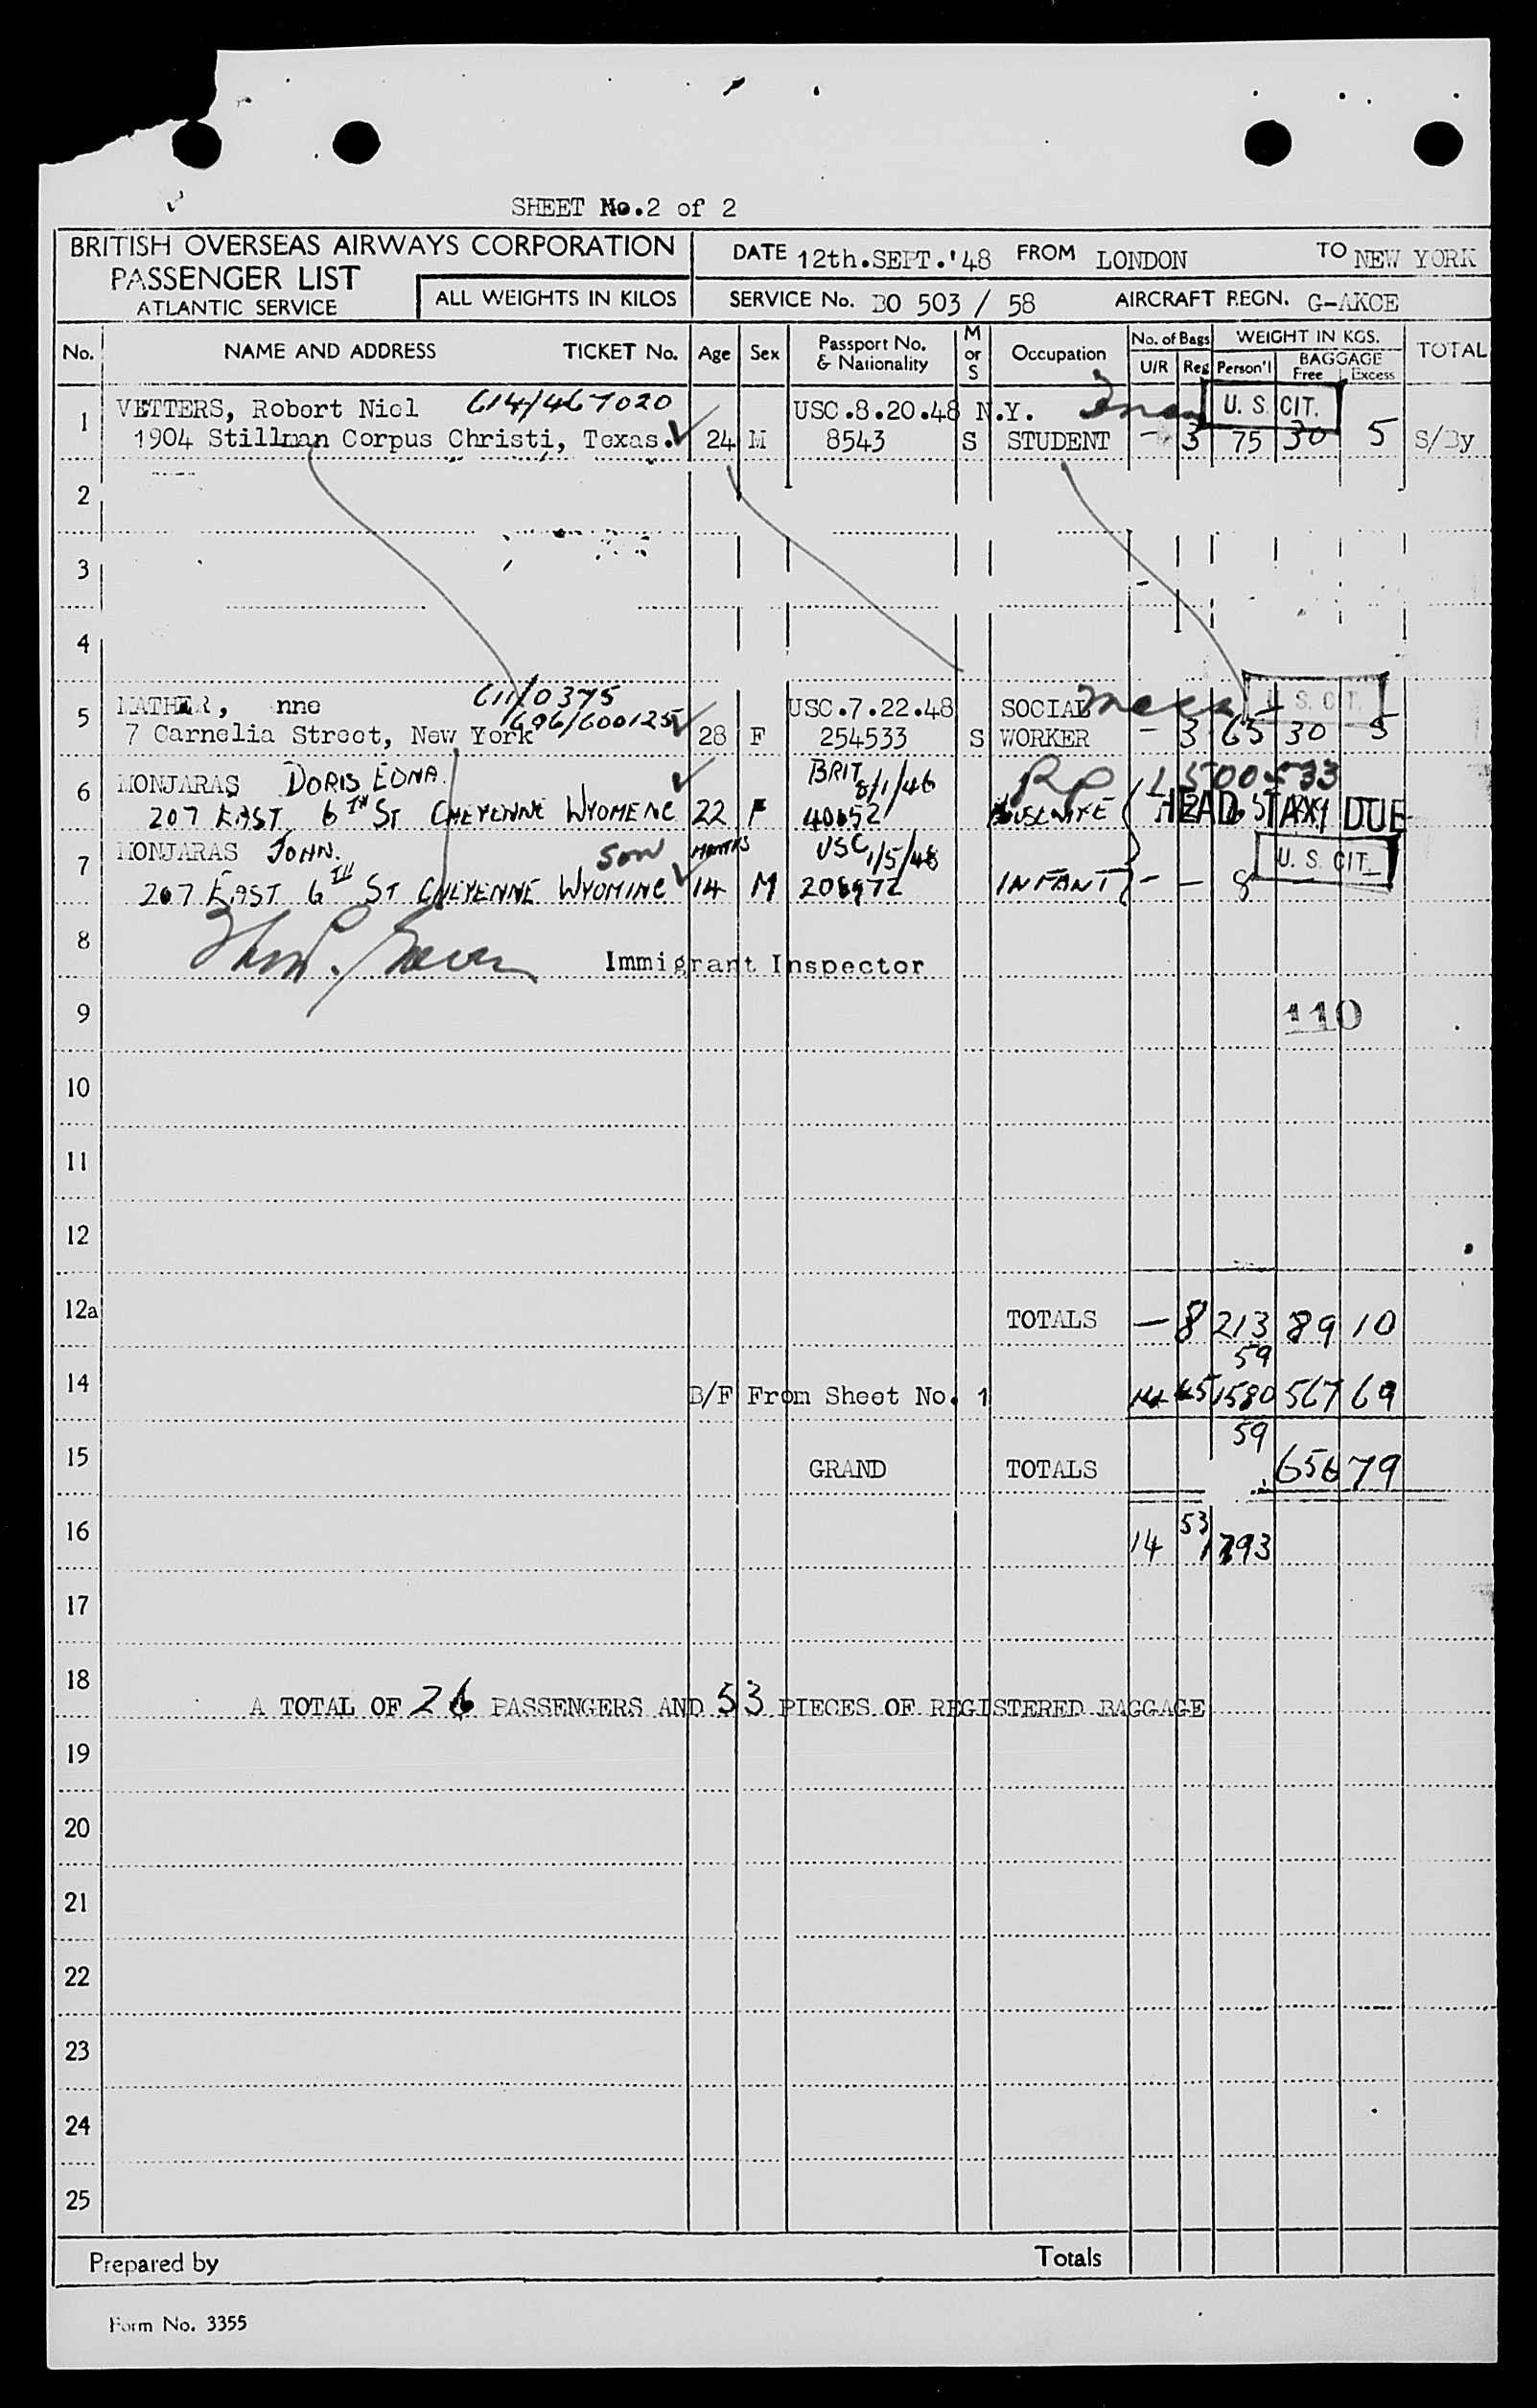 SHEET No.2 of 2
BRITISH OVERSEAS AIRWAYS CORPORATION
PASSENGER LIST
ATLANTIC SERVICE
ALL WEIGHTS IN KILOS
DATE 12th.SEPT.'48 FROM LONDON TO NEW YORK
SERVICE No. BO 503 / 58 AIRCRAFT REGN. G-AKCE
No. NAME AND ADDRESS TICKET No. Age Sex Passport No. & Nationality M or S Occupation No. of Bags U/R Reg WEIGHT IN KGS. Person'l BAGGAGE Free Excess TOTAL
1 VETTERS, Robert Niel 614/467020 USC.8.20.48 N.Y. U. S. CIT.
1904 Stillman Corpus Christi, Texas. 24 M 8543 S STUDENT - 3 75 30 5 S/By
2
3
4
5 MATHER, nne 611/0375 USC.7.22.48 SOCIAL U. S. CIT.
7 Carnelia Street, New York 1606/600125 28 F 254533 S WORKER - 3 65 30 5
6 MONJARAS DORIS EDNA. BRIT 8/1/46 RP 1500533
207 EAST 6TH ST CHEYENNE WYOMENG 22 F 40652 HOUSEWIFE HEAD TAX DUE
7 MONJARAS JOHN. SON MONTHS USC 1/5/48 U. S. CIT.
207 EAST 6TH ST CHEYENNE WYOMING 14 M 206972 INFANT - - 8
8 Immigrant Inspector
9 110
10
11
12
12a TOTALS - 8 213 89 10
59
14 B/F From Sheet No. 1 14 45 1580 567 69
59
15 GRAND TOTALS 656 79
16 14 53 1793
17
18 A TOTAL OF 26 PASSENGERS AND 53 PIECES OF REGISTERED BAGGAGE
19
20
21
22
23
24
25
Prepared by Totals
Form No. 3355